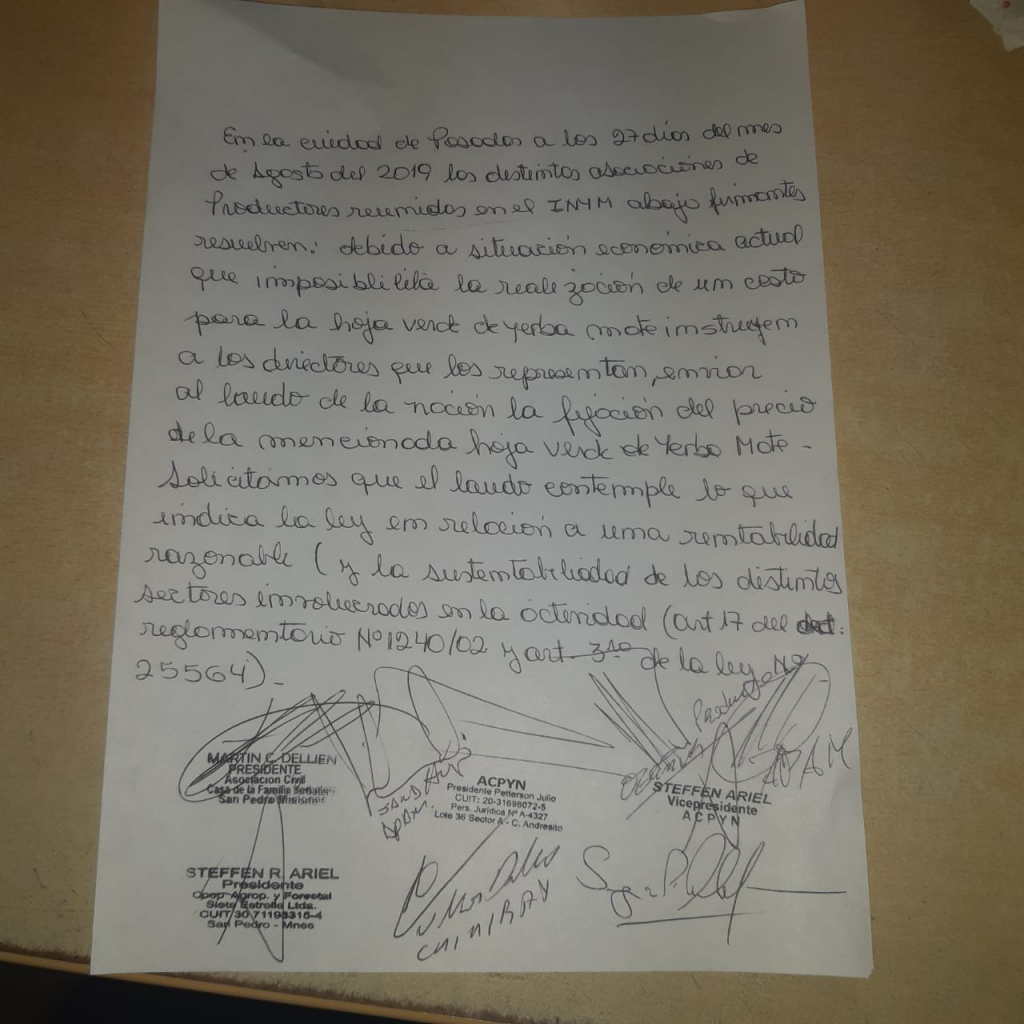 En la ciudad de Posadas a los 27 días del mes
de Agosto del 2019 los distintos asociaciones de
Productores reunidos en el INYM abajo firmantes
resuelven: debido a situación económica actual
que imposiblilita la realización de un costo
para la hoja verde de yerba mate instruyen
a los directores que los representan, enviar
al laudo de la nación la fijación del precio
de la mencionada hoja verde de Yerba Mate -
Solicitamos que el laudo contemple lo que
indica la ley en relación a una rentabilidad
razonable ( y la sustentabiliadad de los distintos
sectores involucrados en la actividad (art 17 del
reglamentario Nº 1240/02 y art 3ro de la ley Nº
25564).-
MARTIN C. DELLIEN
PRESIDENTE
Asociacion Civil
Casa de la Familia
San Pedro Misiones
ACPYN
Presidente Petterson Julio
CUIT: 20-31698072-5
Pers. Jurídica Nº A-4327
Lote 36 Sector A - C. Andresito
APAM
STEFFEN ARIEL
Vicepresidente
ACPYN
STEFFEN R. ARIEL
Presidente
Coop Agrop. y Forestal
Siete Estrella Ltda.
CUIT 30 71193316-4
San Pedro - Mnes